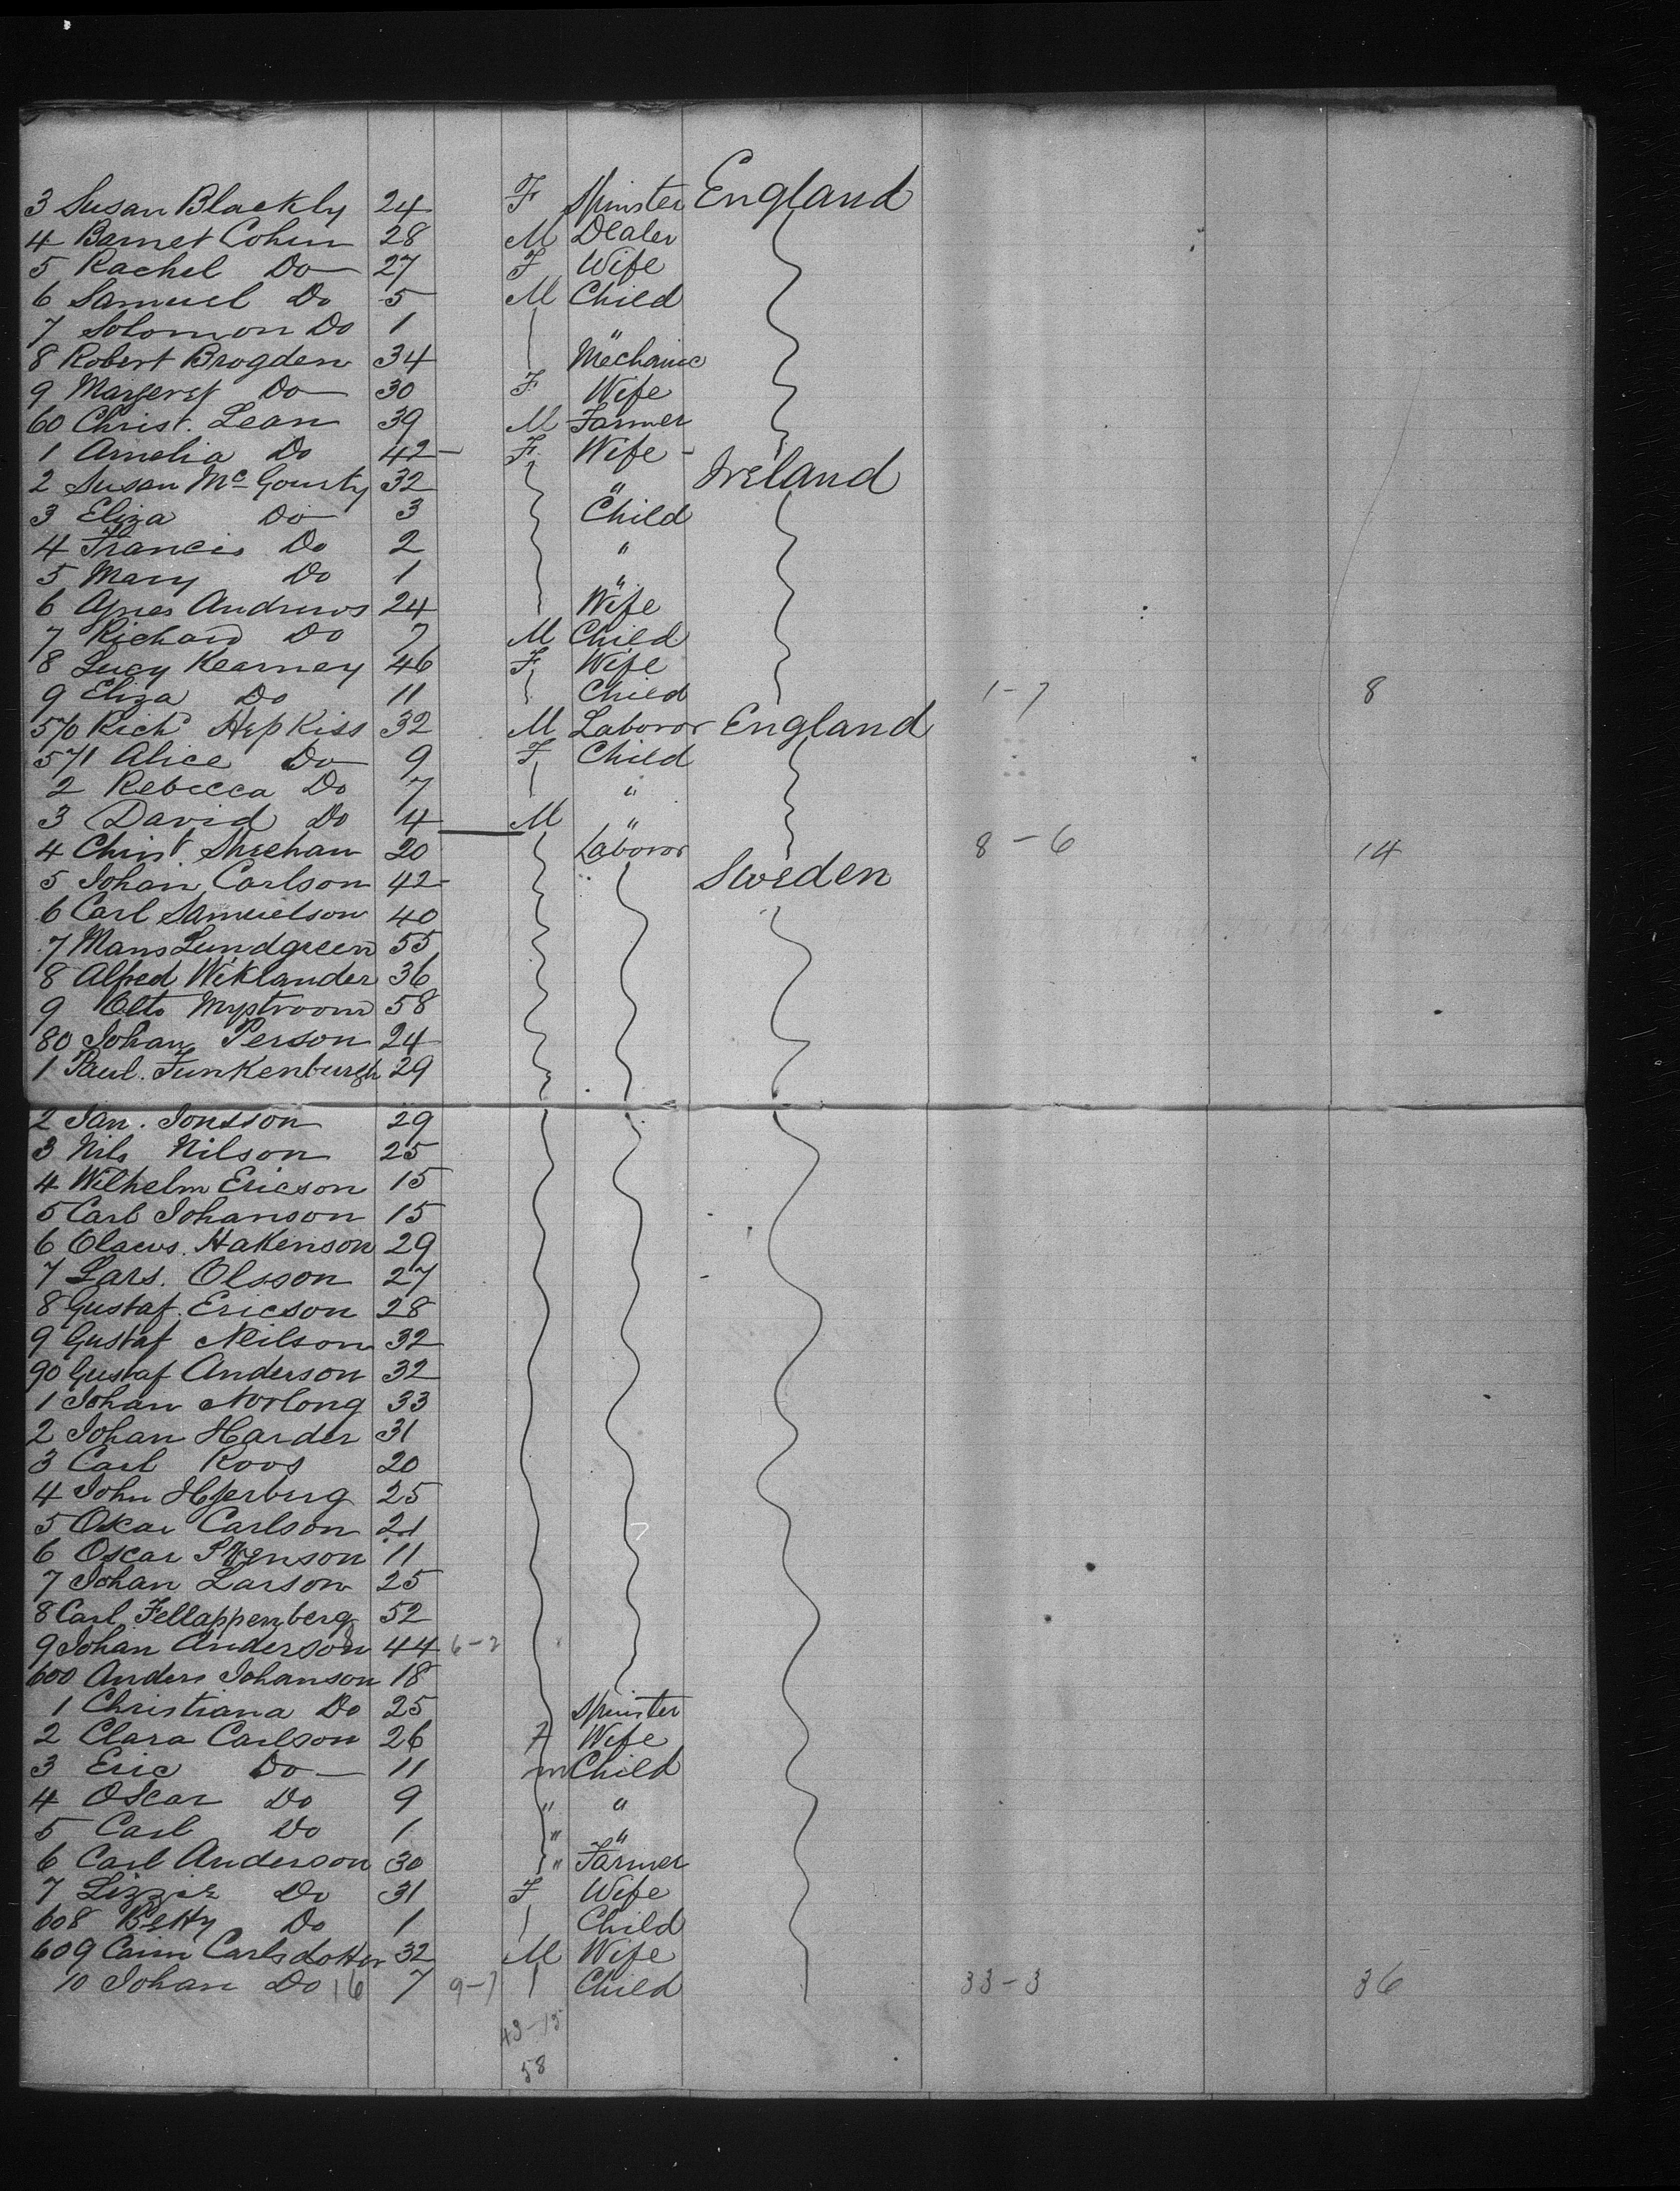 3 Susan Blackly 24 F Spinster England
4 Barnet Cohen 28 M Dealer
5 Rachel Do 27 F Wife
6 Samuel Do 5 M Child
7 Solomon Do 1 "
8 Robert Brogden 34 Mechanic
9 Margeret Do 30 F Wife
60 Christ. Lean 39 M Farmer
1 Amelia Do 42 F Wife
2 Susan McGourty 32 " Ireland
3 Eliza Do 3 Child
4 Francis Do 2 "
5 Mary Do 1 "
6 Agnes Andrews 24 Wife
7 Richard Do 7 M Child
8 Lucy Kearney 46 F Wife
9 Eliza Do 11 Child 1-7 8
570 Richd Hepkiss 32 M Laboror England
571 Alice Do 9 F Child
2 Rebecca Do 7 "
3 David Do 4 M "
4 Christ. Sheehan 20 Laboror 8-6 14
5 Johan Carlson 42 Sweden
6 Carl Samuelson 40
7 Mans Lundgreen 55
8 Alfred Wiklander 36
9 Otto 58
80 Johan Person 24
1 Paul. Funkenburgh 29
2 Jan. Jonsson 29
3 Nils Nilson 25
4 Wilhelm Ericson 15
5 Carl Johanson 15
6 Olaeus. Hakenson 29
7 Lars. Olsson 27
8 Gustaf. Ericson 28
9 Gustaf Neilson 32
90 Gustaf Anderson 32
1 Johan Norlong 33
2 Johan Harder 31
3 Carl Roos 20
4 John Hjerberg 25
5 Oskar Carlson 21
6 Oscar Svenson 11
7 Johan Larson 25
8 Carl Fellappenberg 52
9 Johan Anderson 44 6-2
600 Anders Johanson 18
1 Christiana Do 25 Spinster
2 Clara Carlson 26 F Wife
3 Eric Do 11 m Child
4 Oscar Do 9 " "
5 Carl Do 1 " "
6 Carl Anderson 30 " Farmer
7 Lizzie Do 31 F Wife
608 Betty Do 1 Child
609 Carlsdotter 32 M Wife
10 Johan Do 16 7 9-7 Child 33-3 36
43-15
58